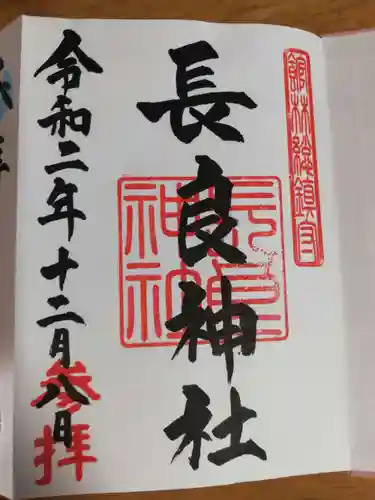 舘林総鎮守
長良神社
長良神社
令和二年十二月八日
参拝